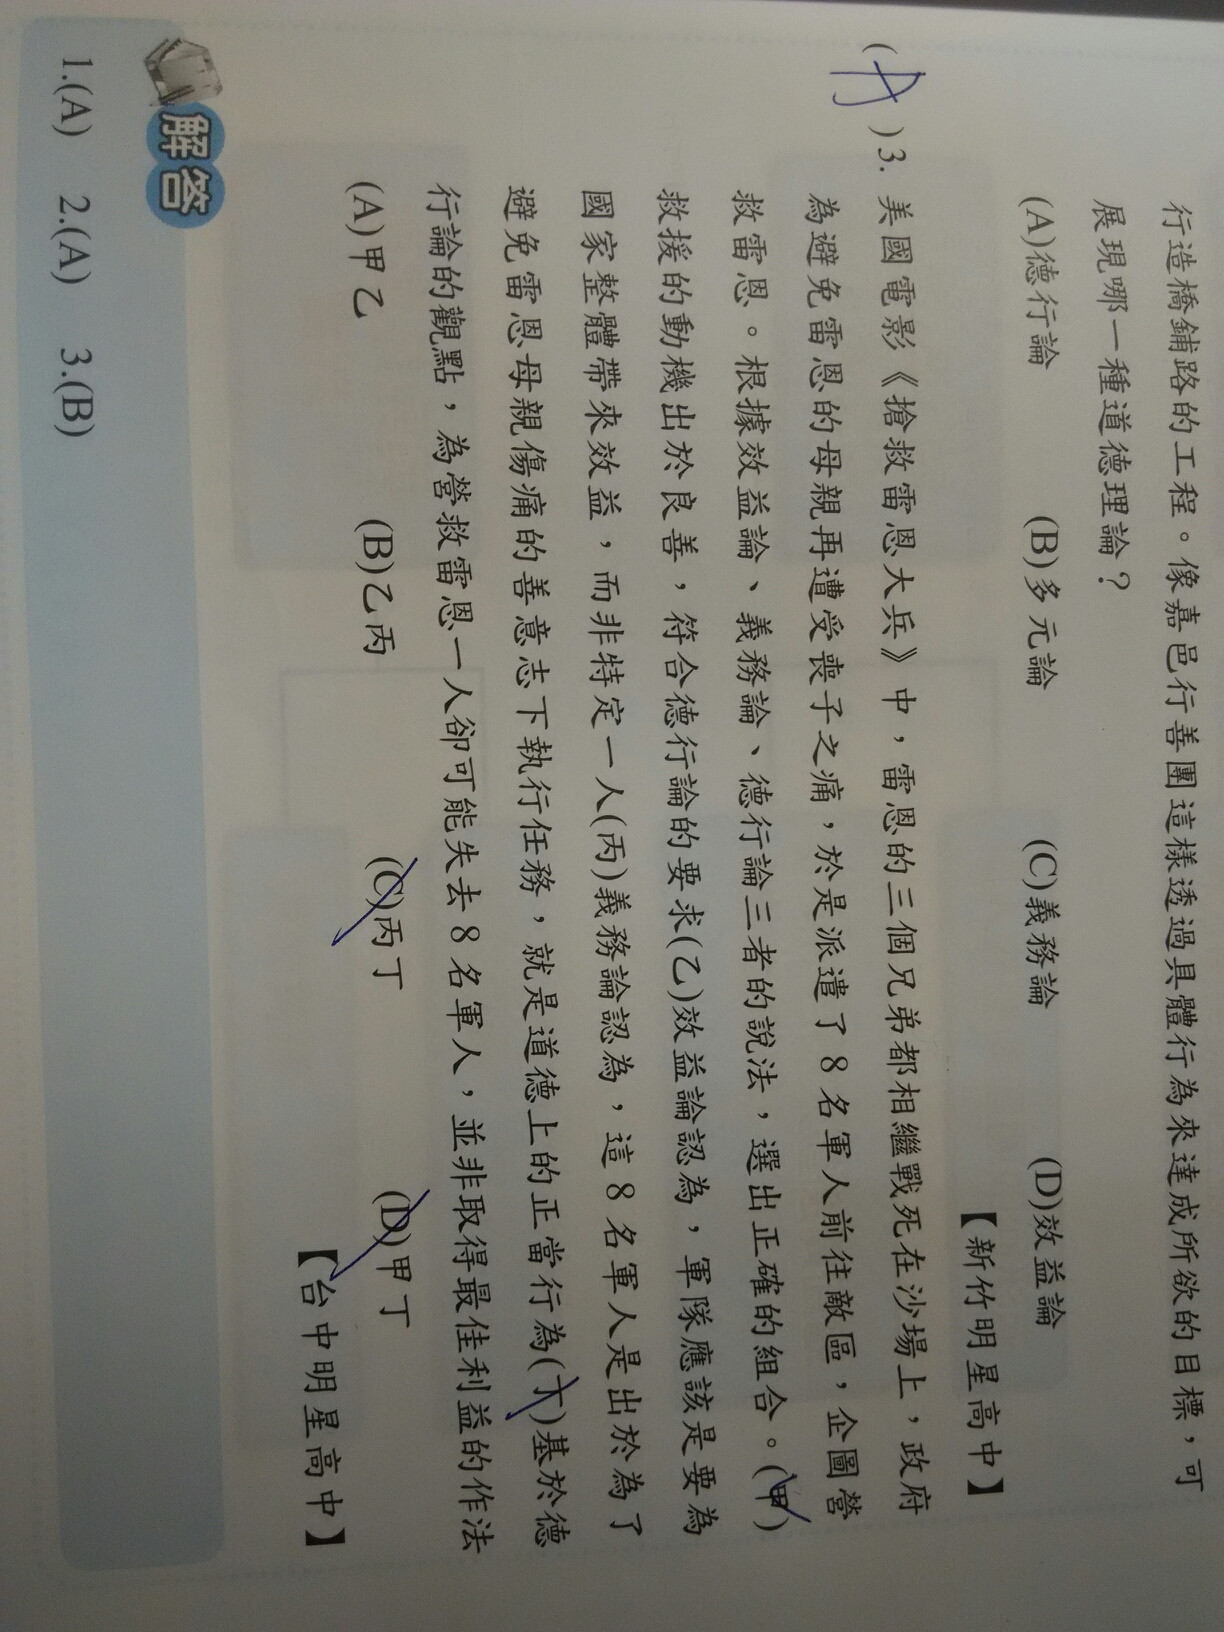 行造橋鋪路的工程。像嘉邑行善團這樣透過具體行為來達成所欲的目標，可
展現哪一種道德理論？
(A)德行論 (B)多元論 (C)義務論 (D)效益論
【新竹明星高中】
(A)3. 美國電影《搶救雷恩大兵》中，雷恩的三個兄弟都相繼戰死在沙場上，政府
為避免雷恩的母親再遭受喪子之痛，於是派遣了8名軍人前往敵區，企圖營
救雷恩。根據效益論、義務論、德行論三者的說法，選出正確的組合。(甲)
救援的動機出於良善，符合德行論的要求(乙)效益論認為，軍隊應該是要為
國家整體帶來效益，而非特定一人(丙)義務論認為，這8名軍人是出於為了
避免雷恩母親傷痛的善意志下執行任務，就是道德上的正當行為(丁)基於德
行論的觀點，為營救雷恩一人卻可能失去8名軍人，並非取得最佳利益的作法
(A)甲乙 (B)乙丙 (C)丙丁 (D)甲丁
【台中明星高中】
解答
1.(A) 2.(A) 3.(B)